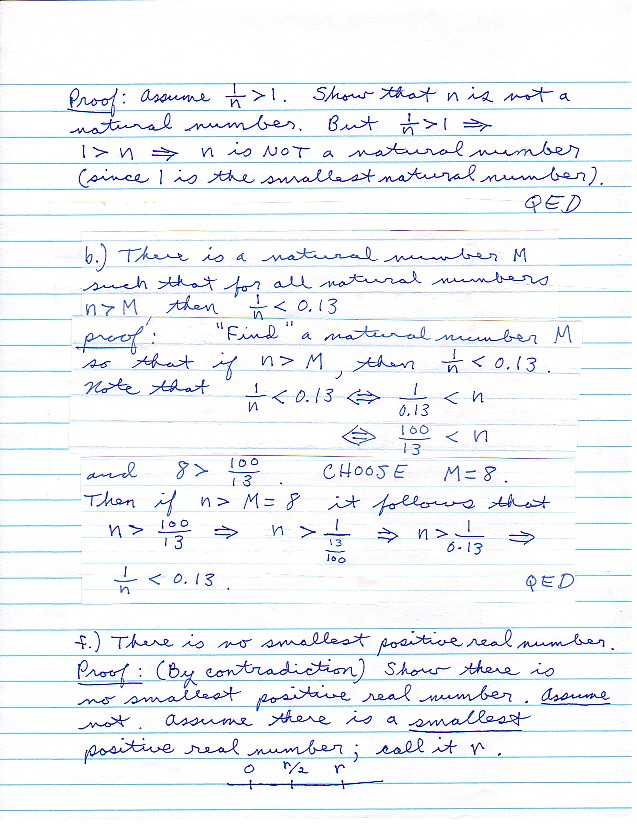 Proof: Assume 1/n > 1. Show that n is not a
natural number. But 1/n > 1 ⇒
1 > n ⇒ n is NOT a natural number
(since 1 is the smallest natural number).
QED
b.) There is a natural number M
such that for all natural numbers
n > M, then 1/n < 0.13
proof: "Find" a natural number M
so that if n > M, then 1/n < 0.13.
Note that 1/n < 0.13 ⇔ 1/0.13 < n
⇔ 100/13 < n
and 8 > 100/13. CHOOSE M = 8.
Then if n > M = 8 it follows that
n > 100/13 ⇒ n > 1/(13/100) ⇒ n > 1/0.13 ⇒
1/n < 0.13. QED
f.) There is no smallest positive real number.
Proof: (By contradiction) Show there is
no smallest positive real number. Assume
not. Assume there is a smallest
positive real number; call it r.
0 r/2 r